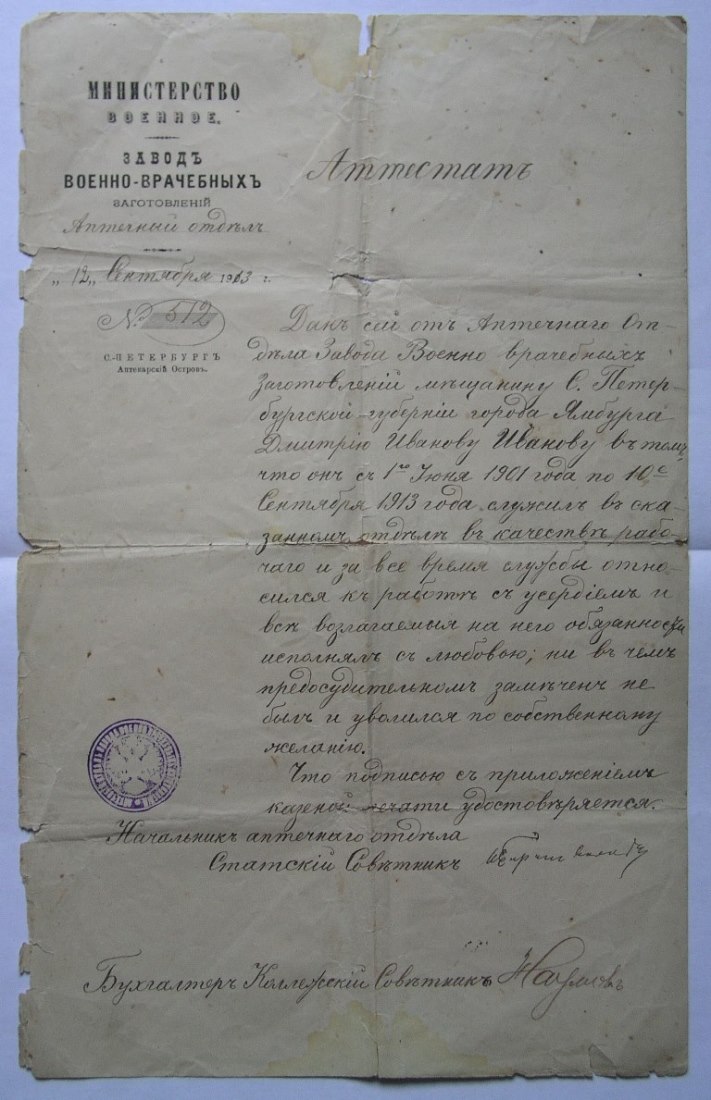 МИНИСТЕРСТВО
ВОЕННОЕ.
ЗАВОДЪ
ВОЕННО-ВРАЧЕБНЫХЪ
ЗАГОТОВЛЕНІЙ
Аптечный отдѣлъ
„12„ Сентября 1913 г.
№ 512
С.-ПЕТЕРБУРГЪ
Аптекарскій Островъ.
Аттестатъ
Данъ сей отъ Аптечнаго От-
дѣла Завода Военно врачебныхъ
Заготовленій мѣщанину С. Петер-
бургской губерніи города Ямбурга
Дмитрію Иванову Иванову въ томъ,
что онъ съ 1го Іюня 1901 года по 10е
Сентября 1913 года служилъ въ ска-
занномъ отдѣлѣ въ качествѣ рабо-
чаго и за все время службы отно-
сился къ работѣ съ усердіемъ и
всѣ возлагаемыя на него обязанности
исполнялъ съ любовью; ни въ чемъ
предосудительномъ замѣченъ не
былъ и уволился по собственному
желанію.
Что подписью съ приложеніемъ
казеной печати удостовѣряется.
Начальникъ аптечнаго отдѣла
Статскій Совѣтникъ
Бухгалтеръ Коллежскій Совѣтникъ